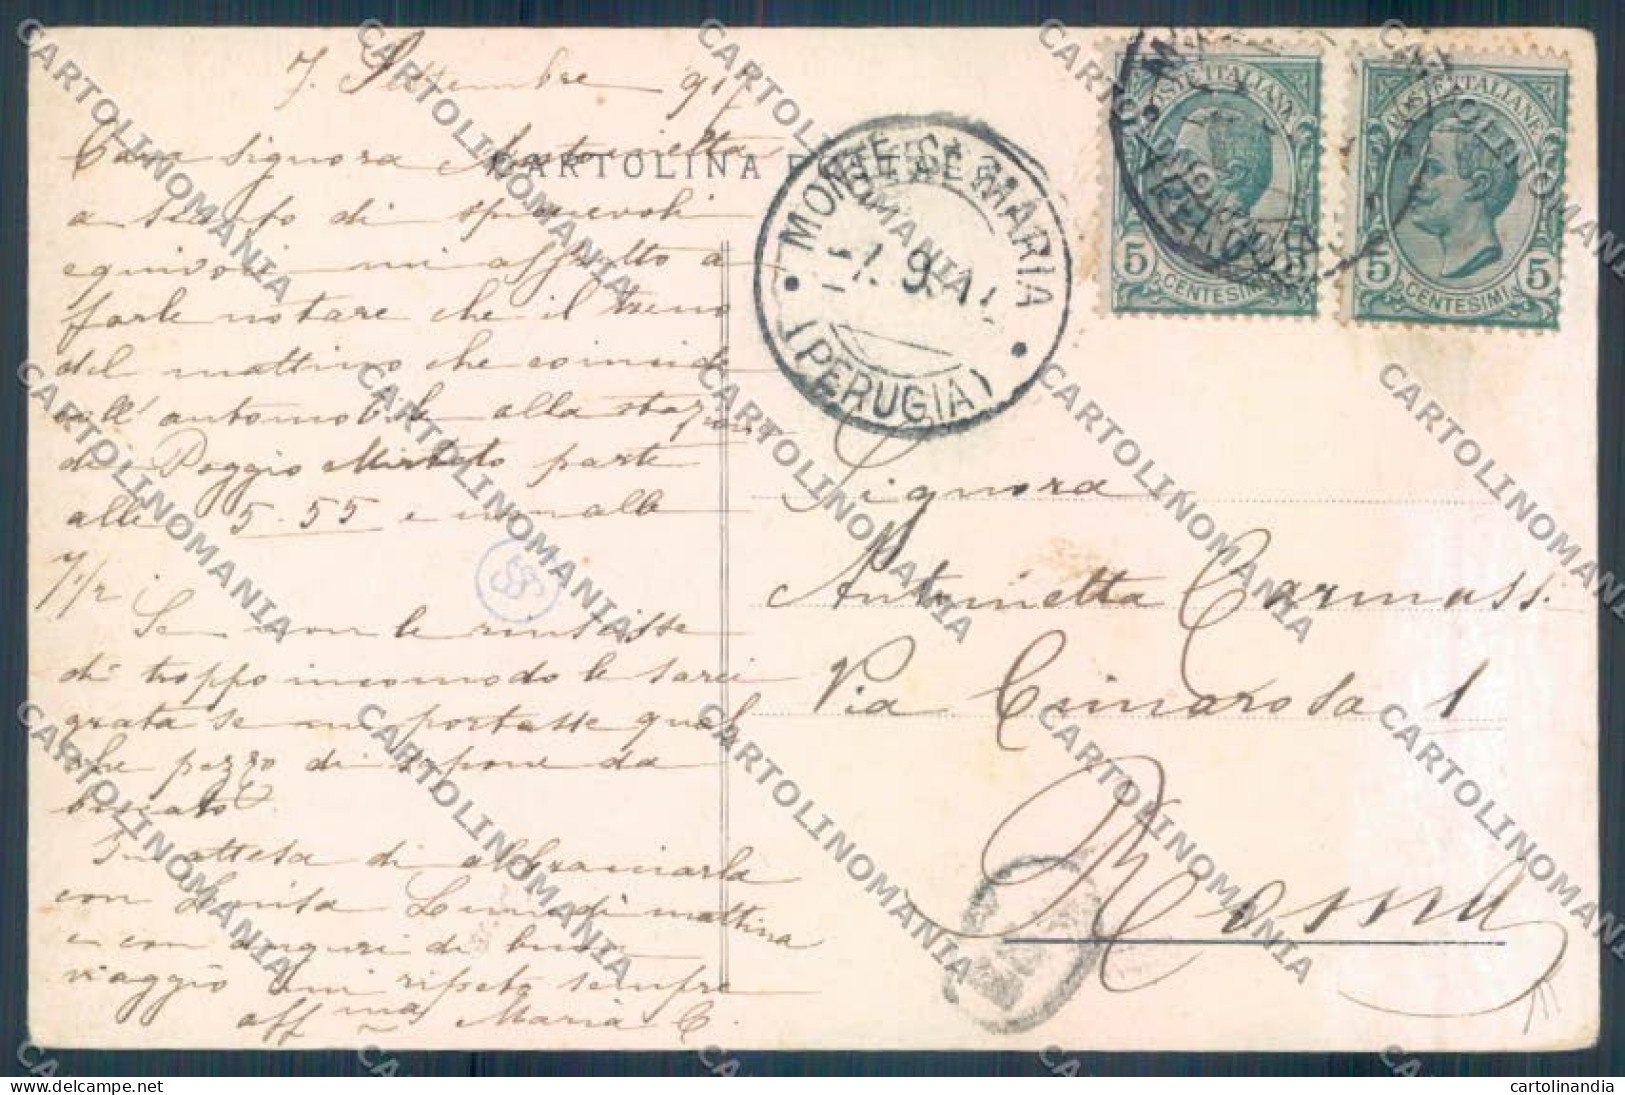 7 Settembre 91
CARTOLINA POSTALE
Cara signora Antonietta
a scanso di spiacevoli
equivoci mi affretto a
farle notare che il treno
del mattino che coincide
coll'automobile alla stazione
di Poggio Mirteto parte
alle 5.55 e non alle
7 1/2
Se non le riuscisse
di troppo incomodo le sarei
grata se mi portasse qual
che pezzo di sapone da
bucato
In attesa di abbracciarla
con Lunedì mattina
e con auguri di buon
viaggio mi ripeto sempre
aff ma Maria C.
MONTE S. MARIA
(PERUGIA)
POSTE ITALIANE
5 CENTESIMI 5
POSTE ITALIANE
5 CENTESIMI 5
Signora
Antonietta Carmassi
Via Cimarosa 1
Roma
CARTOLINOMANIA
cartolinandia